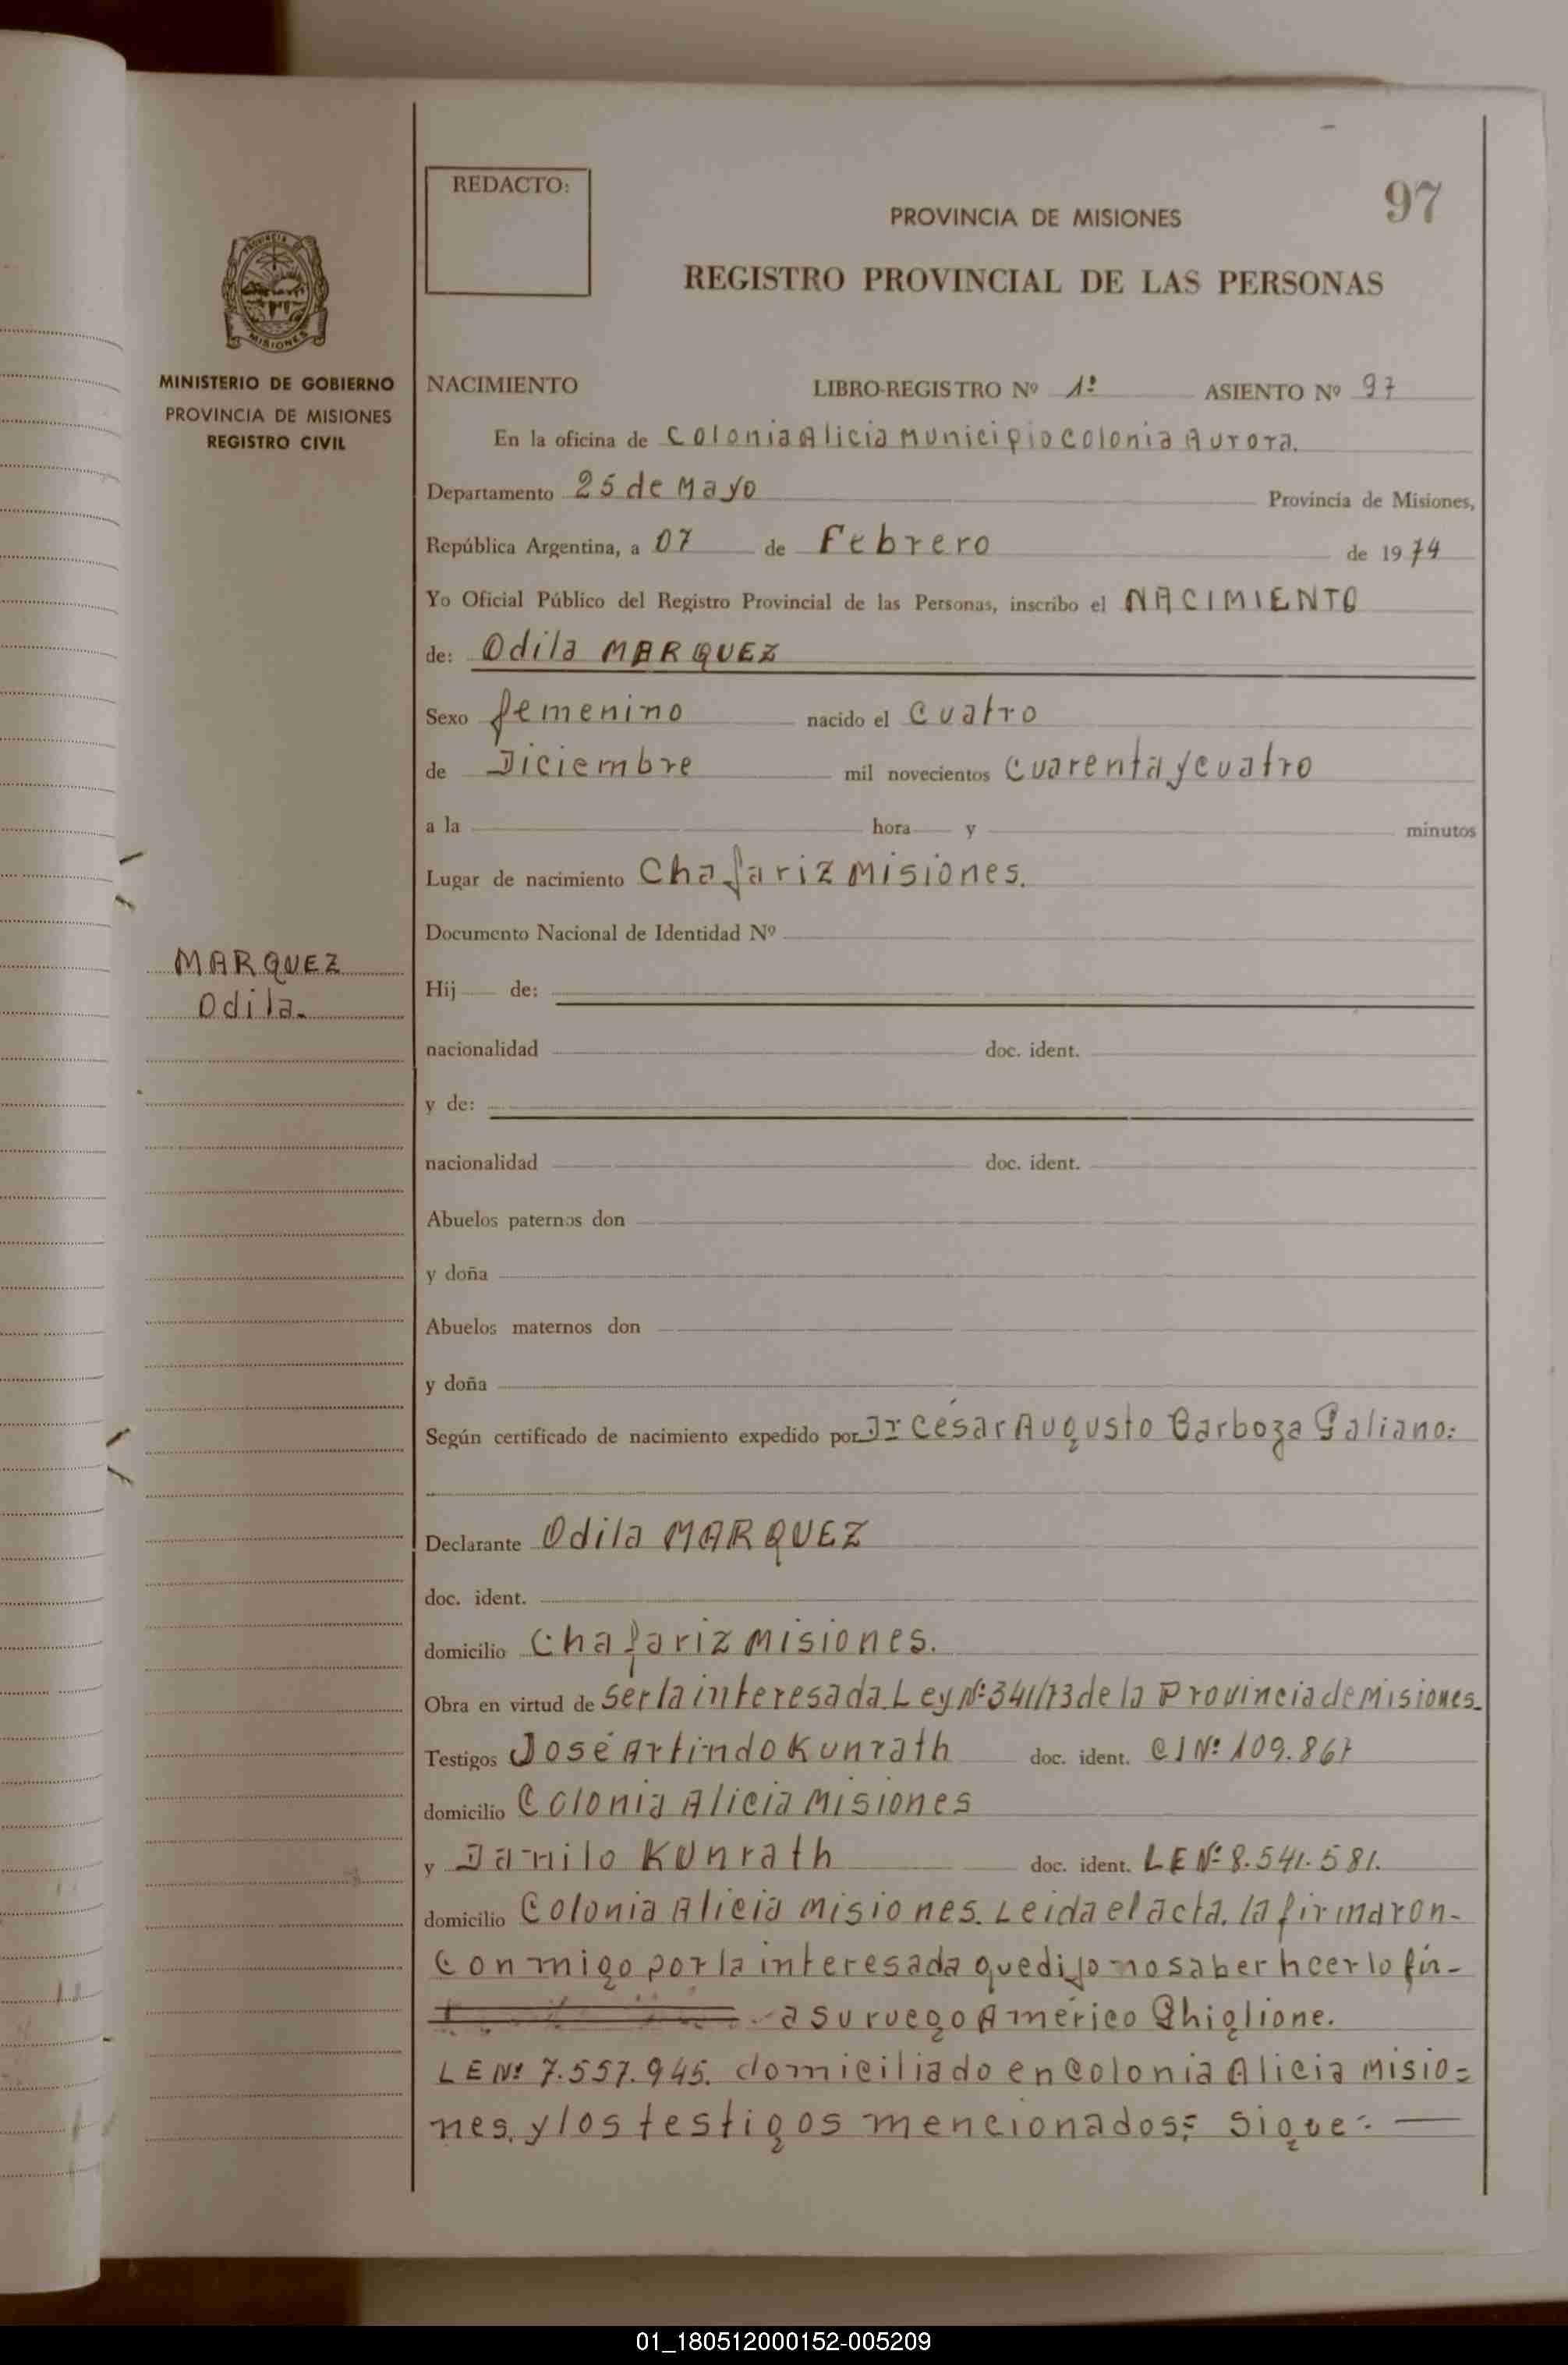 REDACTO:
97
PROVINCIA DE MISIONES
REGISTRO PROVINCIAL DE LAS PERSONAS
PROVINCIA DE
MISIONES
MINISTERIO DE GOBIERNO
PROVINCIA DE MISIONES
REGISTRO CIVIL
NACIMIENTO LIBRO-REGISTRO Nº 1º ASIENTO Nº 97
En la oficina de Colonia Alicia Municipio Colonia Aurora.
Departamento 25 de Mayo Provincia de Misiones,
República Argentina, a 07 de Febrero de 1974
Yo Oficial Público del Registro Provincial de las Personas, inscribo el NACIMIENTO
de: Odila MARQUEZ
Sexo femenino nacido el Cuatro
de Diciembre mil novecientos Cuarenta y cuatro
a la hora y minutos
Lugar de nacimiento Chafariz Misiones.
Documento Nacional de Identidad Nº
MARQUEZ
Odila.
Hij de:
nacionalidad doc. ident.
y de:
nacionalidad doc. ident.
Abuelos paternos don
y doña
Abuelos maternos don
y doña
Según certificado de nacimiento expedido por Dr César Augusto Barboza Galiano:
Declarante Odila MARQUEZ
doc. ident.
domicilio Chafariz Misiones.
Obra en virtud de Ser la interesada. Ley Nº 341/73 de la Provincia de Misiones.
Testigos José Arlindo Kunrath doc. ident. CI Nº 109.867
domicilio Colonia Alicia Misiones
y Danilo Kunrath doc. ident. LE Nº 8.541.581.
domicilio Colonia Alicia Misiones. Leida el acta, la firmaron-
Conmigo por la interesada que dijo no saber hcerlo fir-
a su ruego Américo Ghiglione.
LE Nº 7.557.945. domiciliado en Colonia Alicia Misio=
nes, y los testigos mencionados: Sigue:
01_180512000152-005209